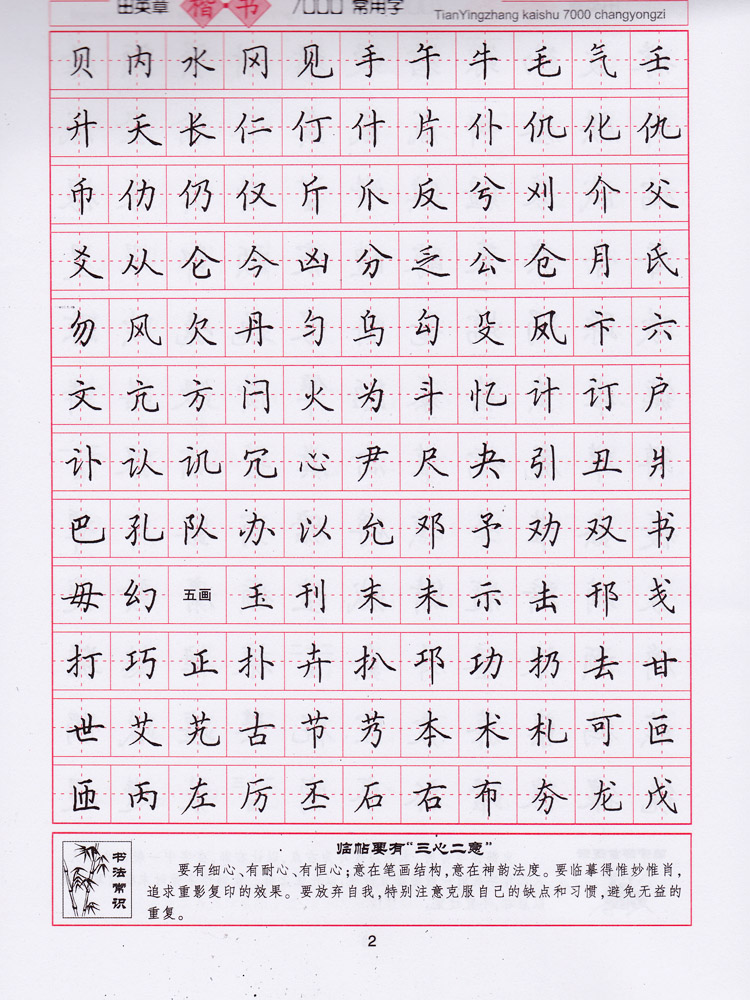 田英章 楷·书 7000 常用字
TianYingzhang kaishu 7000 changyongzi
贝 内 水 冈 见 手 午 牛 毛 气 壬
升 夭 长 仁 仃 什 片 仆 仉 化 仇
币 仂 仍 仅 斤 爪 反 兮 刈 介 父
爻 从 仑 今 凶 分 乏 公 仓 月 氏
勿 风 欠 丹 匀 乌 勾 殳 凤 卞 六
文 亢 方 闩 火 为 斗 忆 计 订 户
讣 认 讥 冗 心 尹 尺 夬 引 丑 爿
巴 孔 队 办 以 允 邓 予 劝 双 书
毋 幻 五画 玉 刊 末 未 示 击 邗 戋
打 巧 正 扑 卉 扒 邛 功 扔 去 甘
世 艾 艽 古 节 艿 本 术 札 可 叵
匝 丙 左 厉 丕 石 右 布 夯 龙 戊
书法常识
临帖要有“三心二意”
要有细心、有耐心、有恒心；意在笔画结构，意在神韵法度。要临摹得惟妙惟肖，
追求重影复印的效果。要放弃自我，特别注意克服自己的缺点和习惯，避免无益的
重复。
2